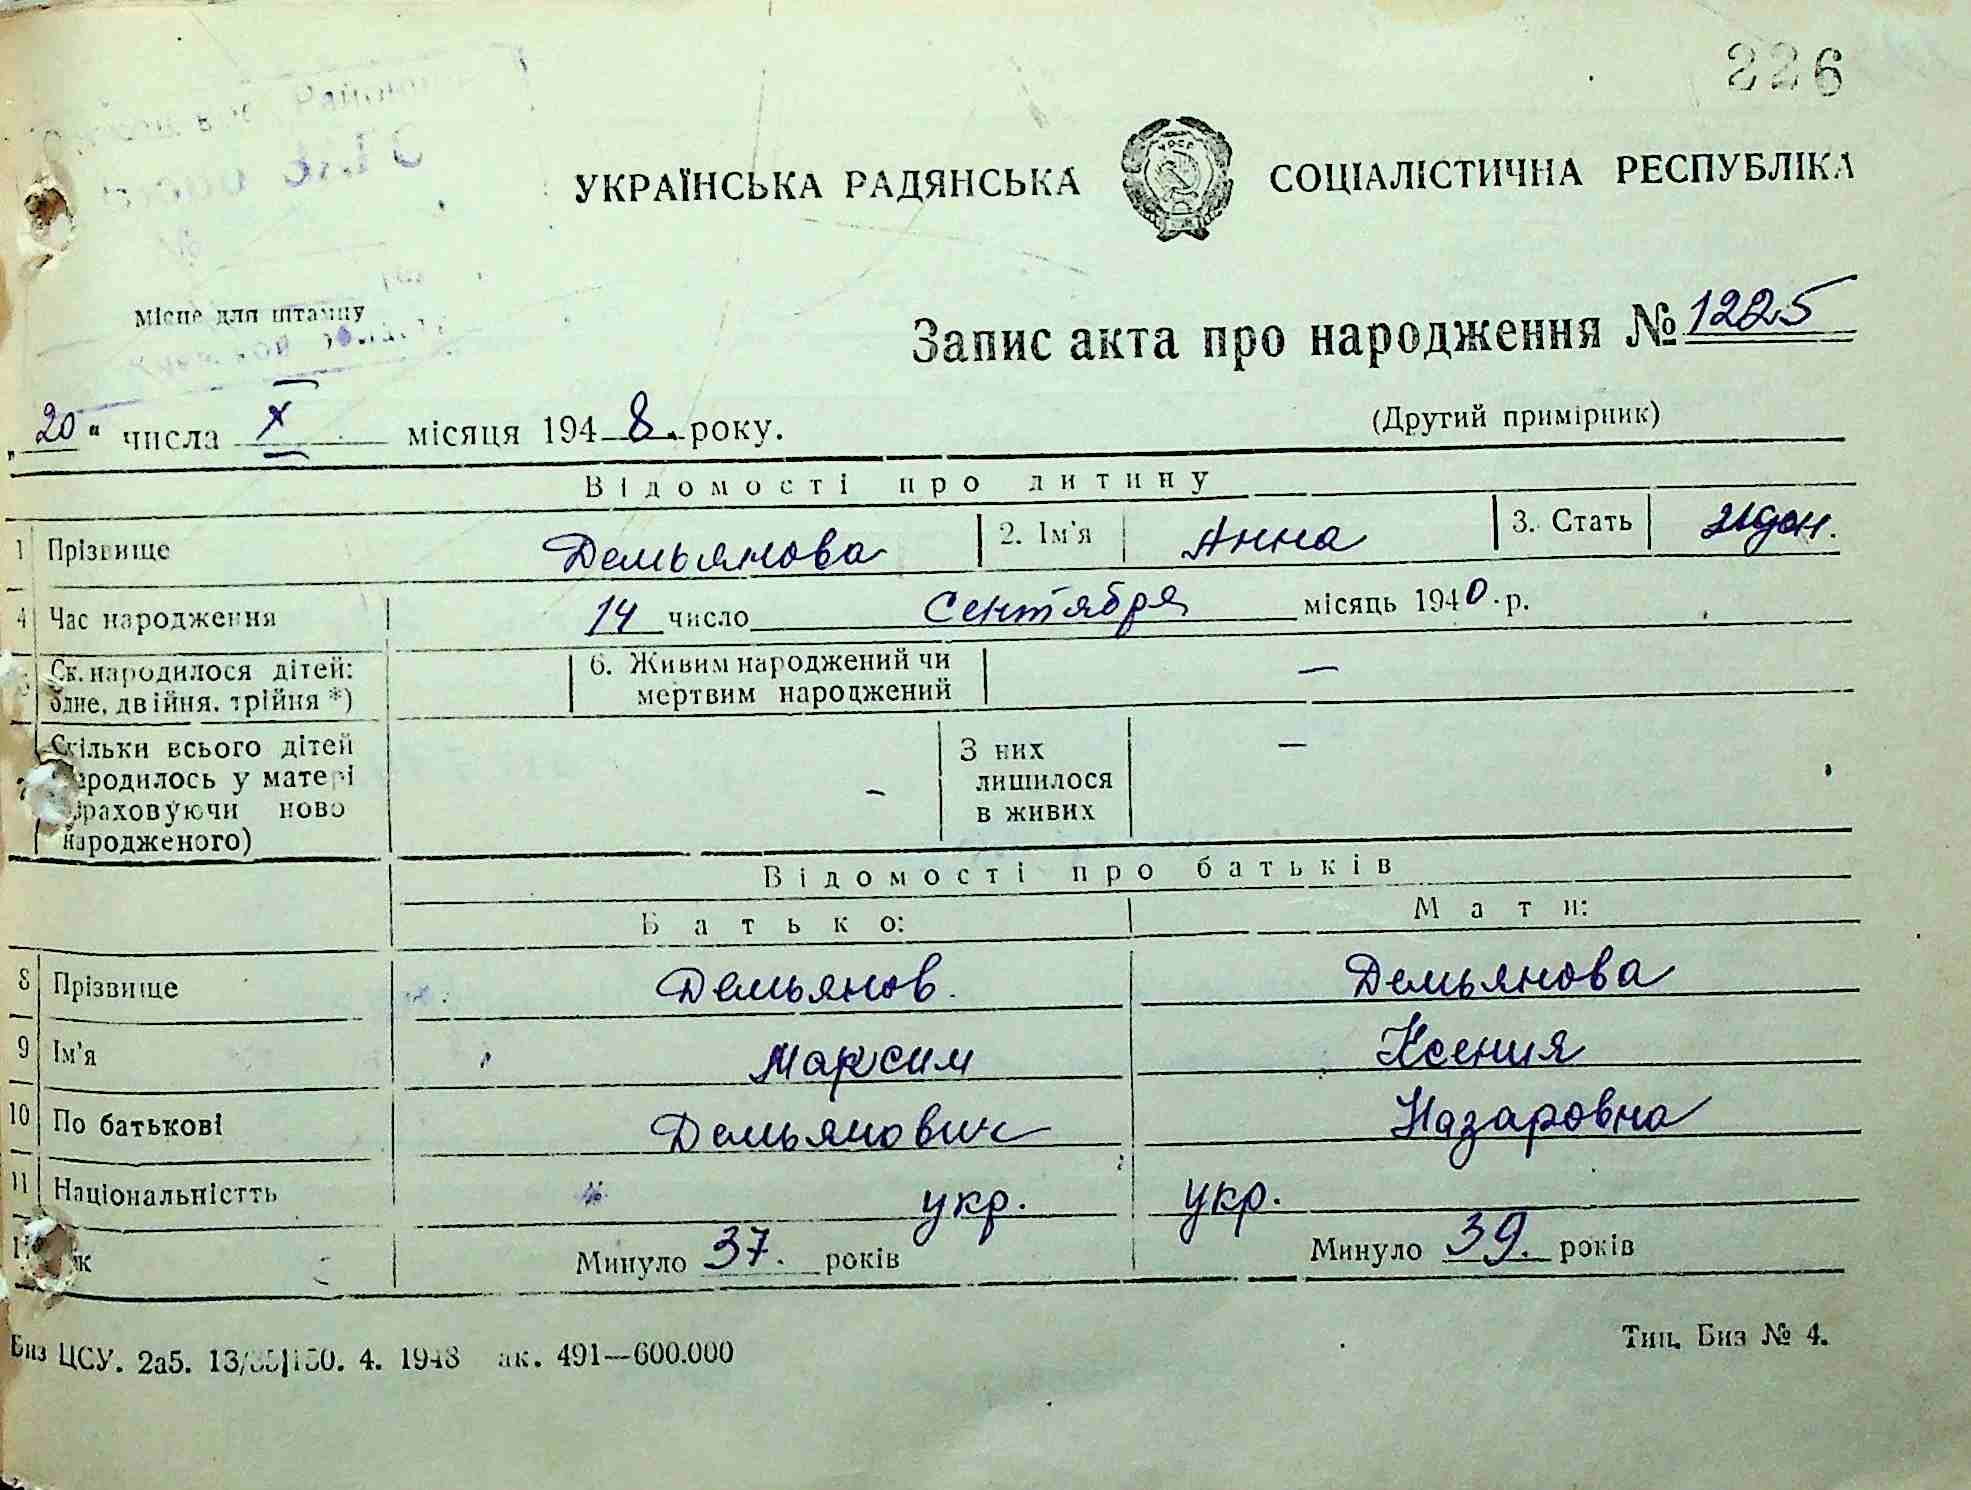 226
УКРАЇНСЬКА РАДЯНСЬКА СОЦІАЛІСТИЧНА РЕСПУБЛІКА
УРСР
Місце для штампу
Запис акта про народження № 1225
(Другий примірник)
„20“ числа X місяця 1948. року.
Відомості про дитину
1 Прізвище Демьянова 2. Ім'я Анна 3. Стать жен.
4 Час народження 14 число Сентября місяць 1940. р.
Ск. народилося дітей: 6. Живим народжений чи —
одне, двійня, трійня *) мертвим народжений
Скільки всього дітей З них —
народилось у матері - лишилося
враховуючи ново в живих
народженого)
Відомості про батьків
Батько: Мати:
8 Прізвище Демьянов. Демьянова
9 Ім'я Максим Ксения
10 По батькові Демьянович Назаровна
11 Національністть укр. укр.
12 Минуло 37. років Минуло 39. років
ЦСУ. 2а5. 4. 1948 ак. 491—600.000
Тип. Биз № 4.